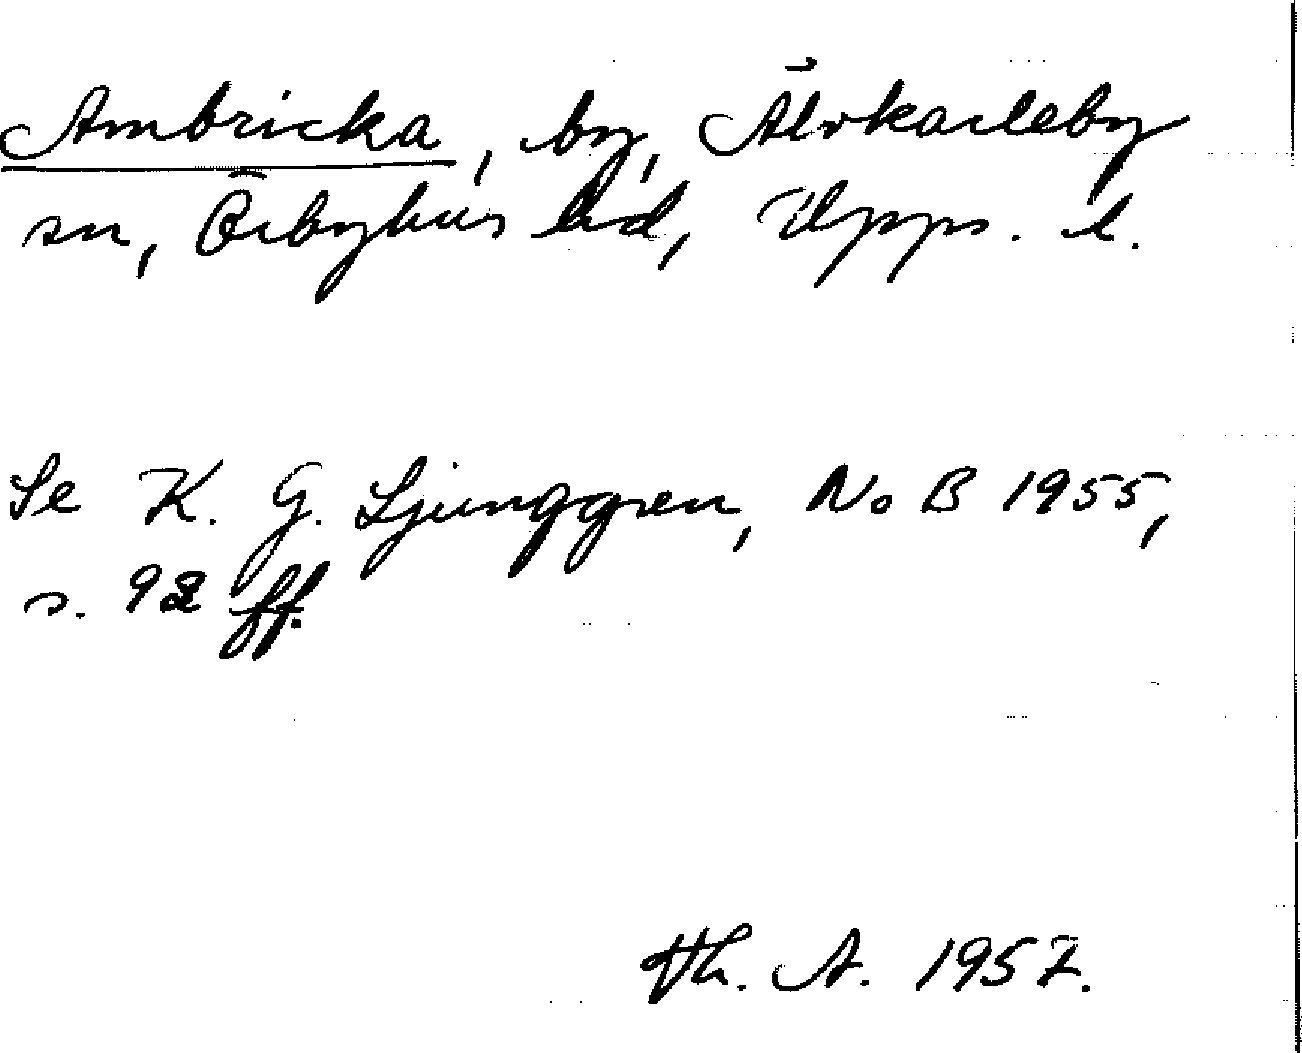 Ambricka, by, Älvkarleby
sn, Örbyhus hd, Upps. l.
Se K. G. Ljunggren, NoB 1955,
s. 92 ff.
Th. A. 1957.